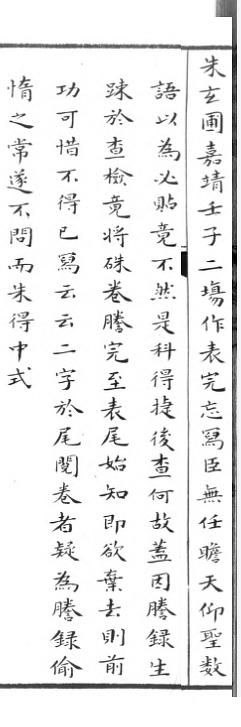 朱玄圃嘉靖壬子二塲作表完忘寫臣無任瞻天仰聖數
語以為必貼竟不然是科得捷後查何故蓋因謄録生
踈於查檢竟將硃卷謄完至表尾始知即欲棄去則前
功可惜不得已寫云云二字於尾閱卷者疑為謄録偷
惰之常遂不問而朱得中式